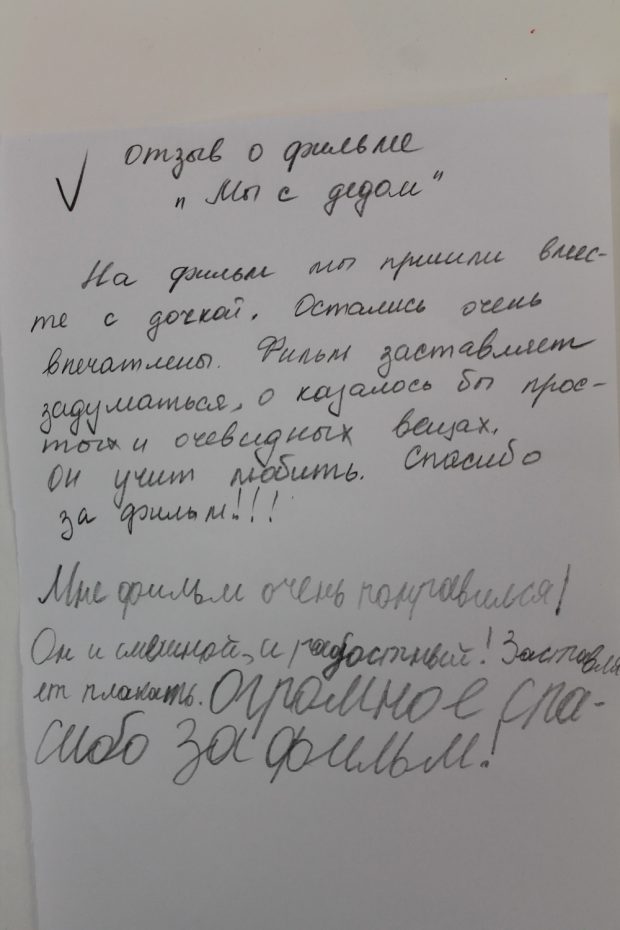 Отзыв о фильме
"Мы с дедом"
На фильм мы пришли вмес-
те с дочкой. Остались очень
впечатлены. Фильм заставляет
задуматься, о казалось бы прос-
тых и очевидных вещах.
Он учит любить. Спасибо
за фильм!!!
Мне фильм очень понравился!
Он и смешной, и радостный! Заставля
ет плакать. Огромное спа-
сибо за фильм!